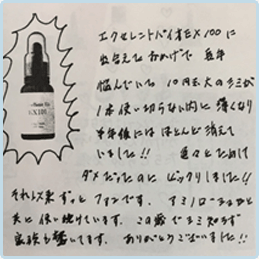 エクセレントバイオEX100に
出会えたおかげで 長年
悩んでいた 10円玉大のシミが
1本使い切らない内に 薄くなり
半年後には ほとんど消えて
いました!! 色々とためして
ダメだったのに ビックリしました!!
それ以来 ずっと ファンです。
夫に 使い続けています。 この歳で シミ知らず
家族も驚いてます。 ありがとうございました!!
EX100